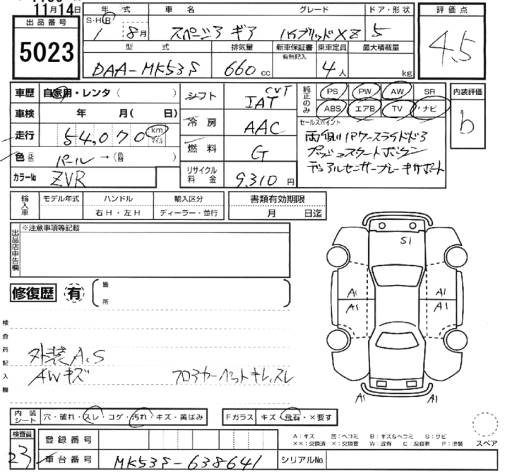 11月14日
出品番号 5023
年式 車名 グレード ドア・形状 評価点
S・H・R 1 8月 スペーシア ギア ハイブリッドXZ 5 4.5
型式 排気量 新車保証書 有無記入 乗車定員 最大積載量
DAA-MK53S 660cc 4人 kg
車歴 自家用・レンタ( ) シフト CVT IAT 純正のみ PS PW AW SR 内装評価
車検 年 月( 日) ABS エアB TV ナビ b
走行 54,070 km マイル 冷房 AAC セールスポイント
両側パワースライドドア
色 パール→ 燃料 G プッシュスタートボタン
カラーNo ZVR リサイクル料金 9,310円 デュアルセンサーブレーキサポート
輸入車 モデル年式 ハンドル 輸入区分 書類有効期限
年 右H・左H ディーラー・並行 月 日迄
出品店申告欄 ※注意事項等記載
修復歴 有 箇所
S1
A1 A1
A1 A1
A1 A1
検査員記入欄
外装A,S
AWキズ フロアカーペットキレ,スレ
内装シート 穴・破れ・スレ・コゲ・汚れ・キズ・黄ばみ Fガラス キズ・飛石・×要す
A:キズ U:ヘコミ B:キズ&ヘコミ S:サビ
××:交換済 ×:交換要 W:波有 C:腐食 P:塗装 スペア
検査員 23 登録番号
車台番号 MK53S-638641 シリアルNo.